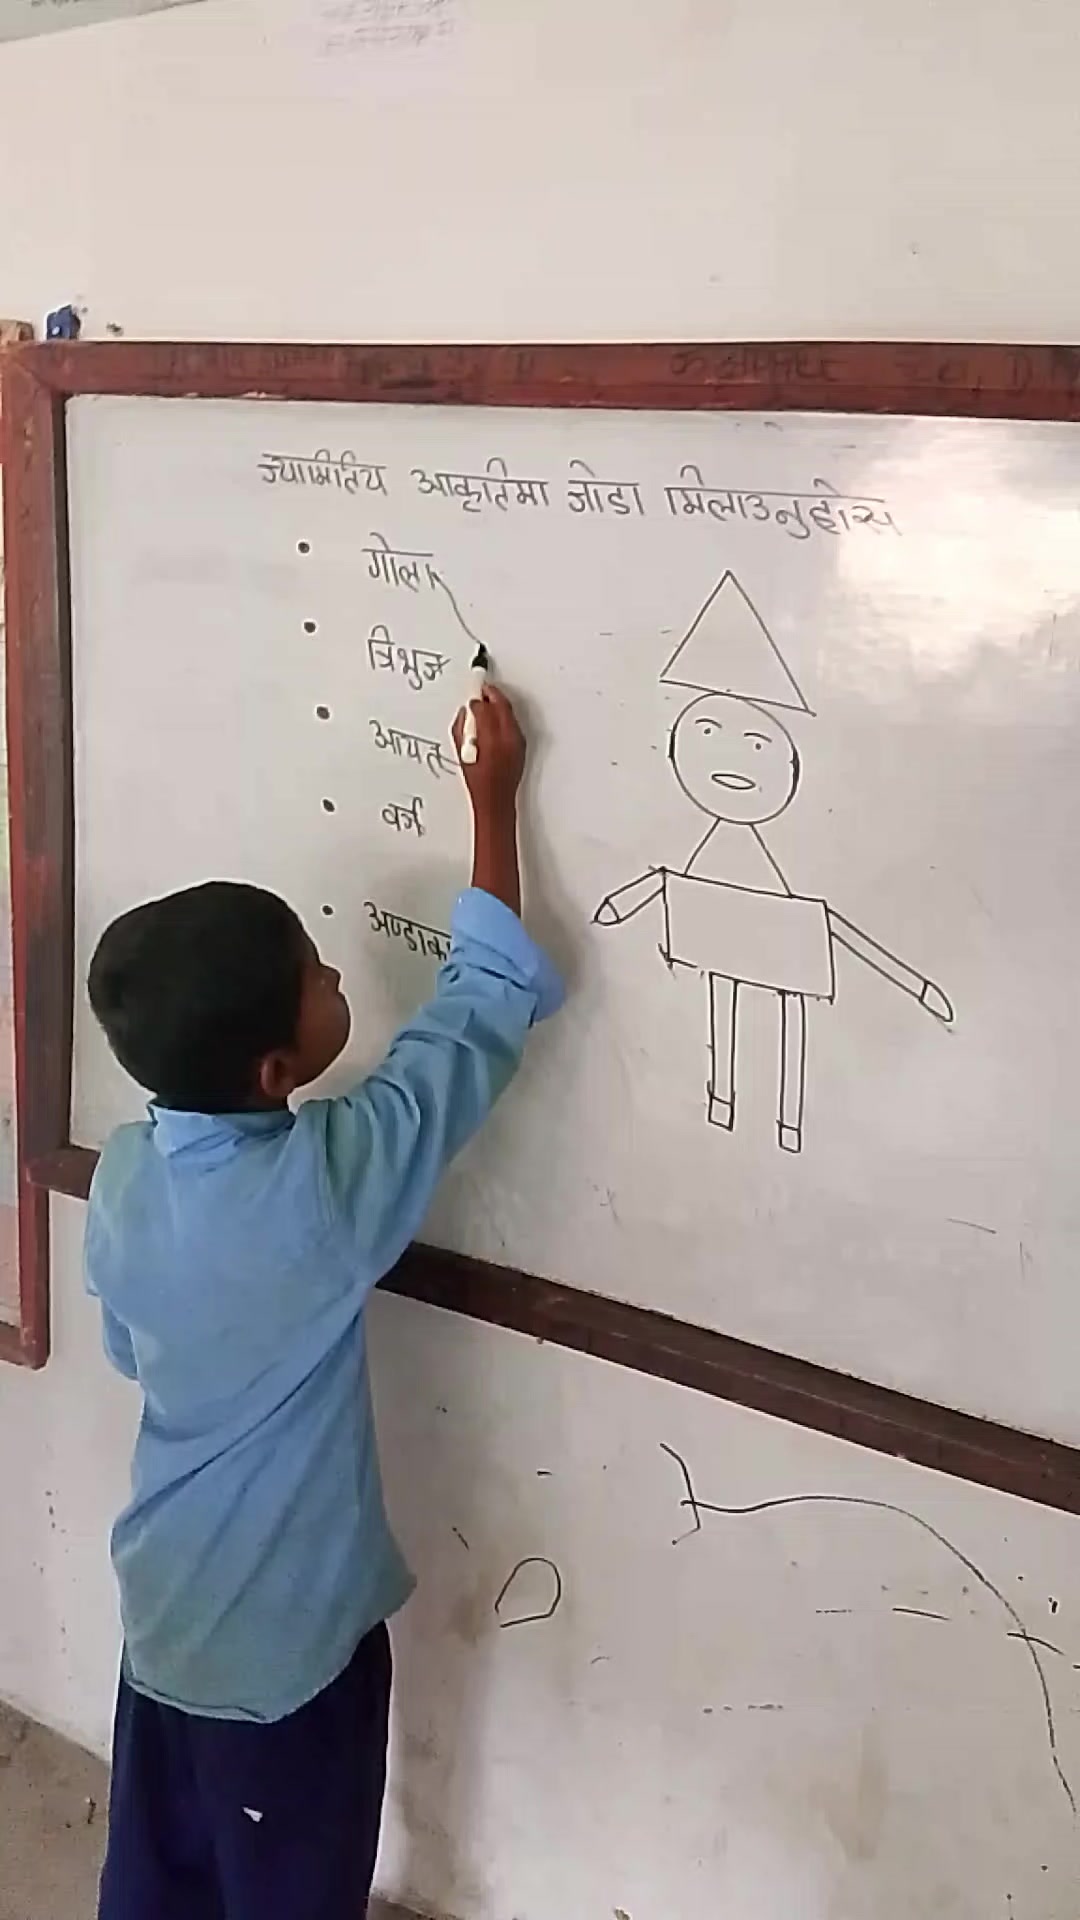 ज्यामितिय आकृतिमा जोडा मिलाउनुहोस
• गोला
• त्रिभुज
• आयत
• वर्ग
• अण्डाका